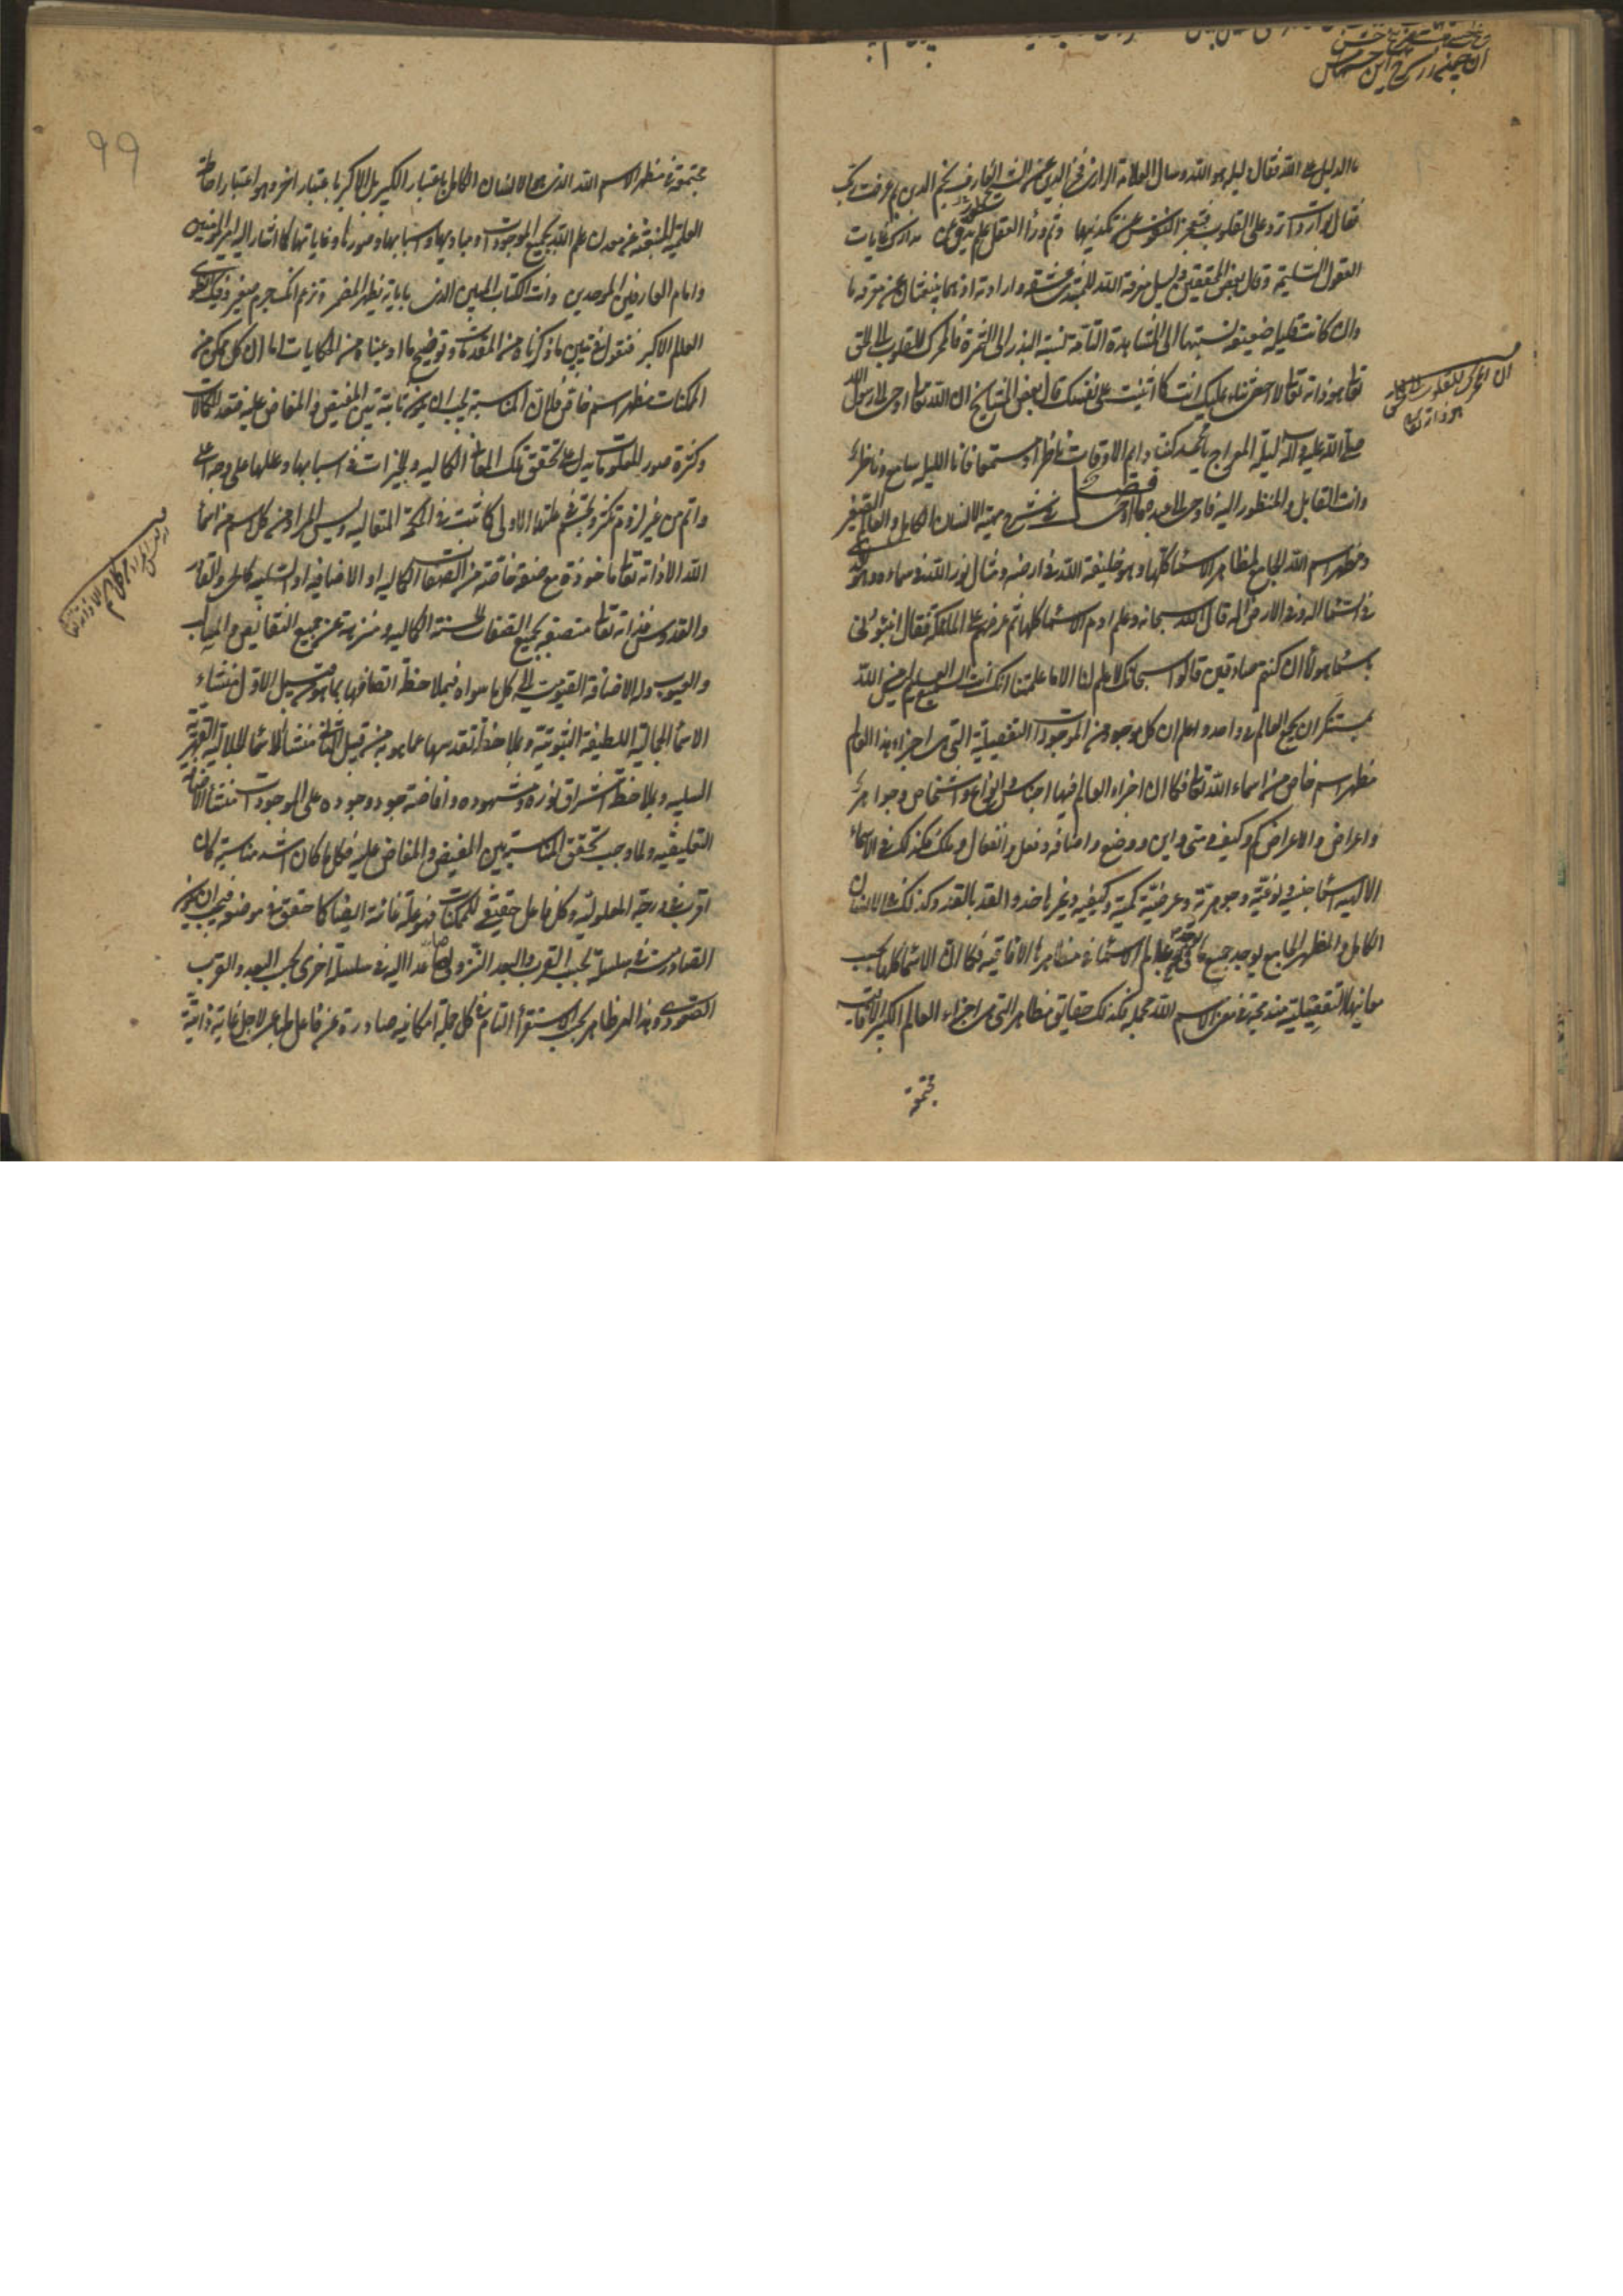 ما الدليل على الله فقال دليله هو الله وسال العلامة الرازي فخر الدين عن الشيخ العارف نجم الدين بم عرفت ربك
فقال بواردات ترد على القلوب فتعجز النفوس عن تكذيبها
العقول السليمة وقال بعض المحققين معرفة الله وارادته
وان كانت قليلة ضعيفة نسبتها الى المشاهدة التامة نسبة البذر الى الثمرة فالمحرك للقلوب الى الحق
تعالى هو ذاته تعالى لا احصي ثناء عليك انت كما اثنيت على نفسك قال بعض المشايخ ان الله تعالى اوحى الى الرسول
صلى الله عليه وآله ليلة المعراج يا محمد كن في دايم الاوقات ناظرا ومستمعا فانا الليلة سامع وناظر
وانت القابل والمنظور اليه فاوحى الى عبده ما اوحى فصل في شرح مهية الانسان الكامل والعالم الصغير
ومظهر اسم الله الجامع لمظاهر الاسماء كلها وهو خليفة الله في ارضه ومثال نور الله في سمائه وهو الذي
في السماء اله وفي الارض اله قال الله سبحانه وعلم ادم الاسماء كلها ثم عرضهم على الملئكة فقال انبئوني
باسماء هؤلاء ان كنتم صادقين قالوا سبحانك لا علم لنا الا ما علمتنا انك انت السميع العليم ليس من الله
بمستنكر ان يجمع العالم في واحد واعلم ان كل موجود من الموجودات التفصيلية التي هي اجزاء هذا العالم
مظهر اسم خاص من اسماء الله تعالى فكما ان اجزاء العالم فيها اجناس وانواع واشخاص وجواهر
واعراض والاعراض كم وكيف ومتى واين ووضع واضافة وفعل وانفعال وملك فكذلك في الاسماء
الالهية اسماء جنسية ونوعية وجوهرية وعرضية كمية وكيفية وغيرها حذو القذة بالقذة وكذلك في الانسان
الكامل والمظهر الجامع يوجد جميع ما في عالم الاسماء مظاهرها الافاقية فكما ان الاسماء كلها بحسب
معانيها التفصيلية مندمجة في معنى الاسم الله مجملة فكذلك حقايق مظاهرها التي هي اجزاء العالم الكبير الافاقية
مجتمعة
مجتمعة في مظهر الاسم الله الذي هو الانسان الكامل باعتبار الكبير بل الاكبر باعتبار اخر وهو اعتبار احاطته
العلمية المنبثقة عن معدن علم الله بجميع الموجودات ومباديها واسبابها وصورها وغاياتها كما اشار اليه امير المؤمنين
وامام العارفين الموحدين وانت الكتاب المبين الذي باياته يظهر المضمر وتزعم انك جرم صغير وفيك انطوى
العالم الاكبر فنقول في تبيين ما ذكرناه من المقدمات وتوضيح ما ادعيناه من الحكايات اما ان كل ممكن من
الممكنات مظهر اسم خاص فلان المناسبة يجب ان يكون ثابتة بين المفيض والمفاض عليه فتعدد الكمالات
وكثرة صور المعلومات يدل على تحقق تلك المعاني الكمالية والخيرات في اسبابها وعللها على وجه اعلى
واتم من غير لزوم تكثر وتجسم في علتها الاولى كما ثبت في الحكمة المتعالية وليس المراد من كل اسم من اسماء
الله الا ذاته تعالى ماخوذة مع صفة خاصة من الصفات الكمالية او الاضافية او السلبية كالحي والقادر
والقدوس فذاته تعالى متصفة بجميع الصفات الحسنة الكمالية ومنزهة عن جميع النقائص والمعايب
والعيوب وله الاضافة القيومية الى كل ما سواه فبملاحظة اتصافها بما هو من قبيل الاول منشاء
الاسماء الجمالية اللطيفة الثبوتية وبملاحظة تقدسها عما هو من قبيل الثاني منشأ الاسماء الجلالية القهرية
السلبية وبملاحظة اشراق نوره وشهوده وافاضة جوده ووجوده على الموجودات منشأ الاضافية
التعليقية ولما وجب تحقق المناسبة بين المفيض والمفاض عليه فكلما كان اشد مناسبة كان
اقرب في درجة المعلولية وكل فاعل حقيقي للممكنات فهو علة غائية ايضا كما حقق في موضعه فيجب ان يكون
الصادرات في سلسلة بحسب القرب والبعد النزولي صاعدا اليه في سلسلة اخرى بحسب البعد والقرب
الصعودي وهذا امر ظاهر بحسب الاستقراء التام في كل جملة امكانية صادرة عن فاعل لاجل غاية ذاتية